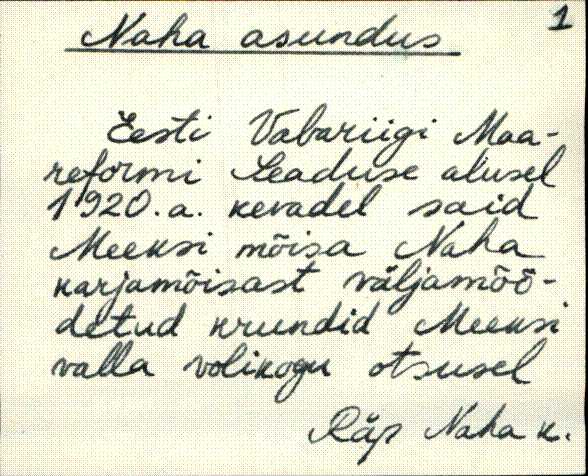 1
Naha asundus
Eesti Vabariigi Maa-
reformi Seaduse alusel
1920. a. kevadel said
Meeksi mõisa Naha
karjamõisast väljamõõ-
detud krundid Meeksi
valla volikogu otsusel
Räp Naha k.